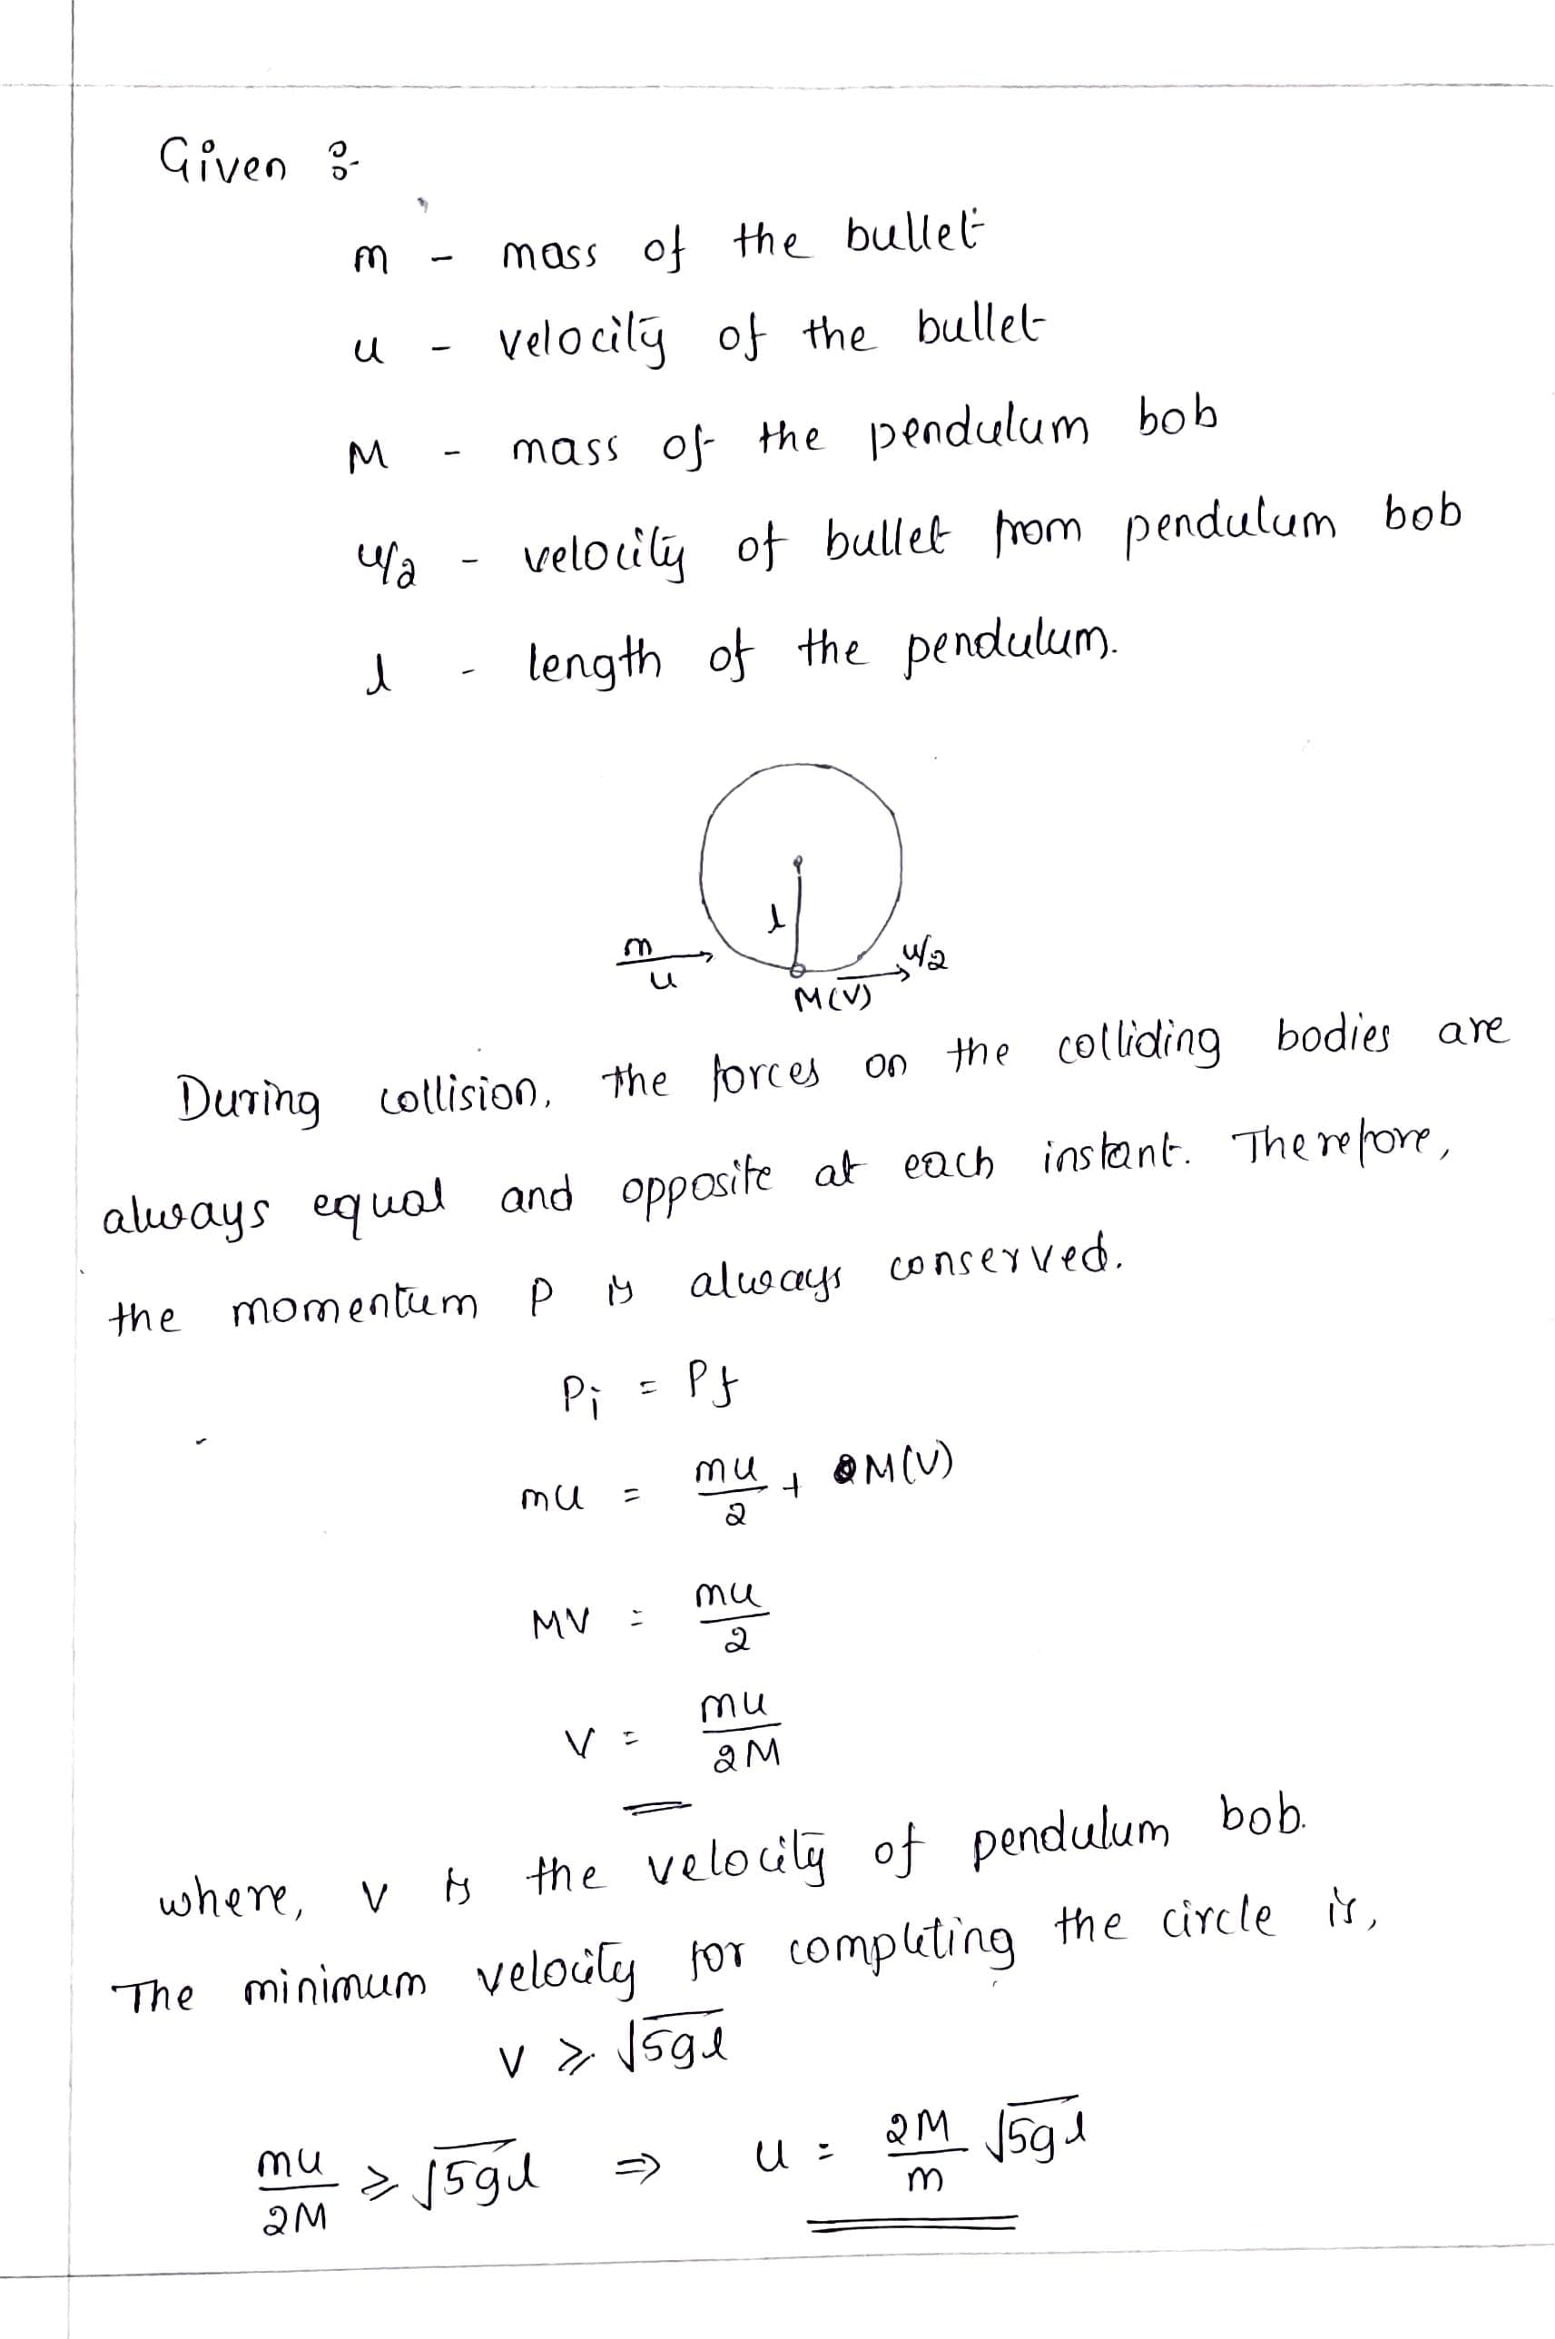 Given :-
m - mass of the bullet
u - velocity of the bullet
M - mass of the pendulum bob
u/2 - velocity of bullet from pendulum bob
l - length of the pendulum.
l
m
u
u/2
M(V)
During collision, the forces on the colliding bodies are
always equal and opposite at each instant. Therefore,
the momentum P is always conserved.
Pi = Pf
mu = mu/2 + M(V)
MV = mu/2
V = mu/2M
where, v is the velocity of pendulum bob.
The minimum velocity for completing the circle is,
V ≥ √5gl
mu/2M ≥ √5gl ⇒ u = 2M/m √5gl